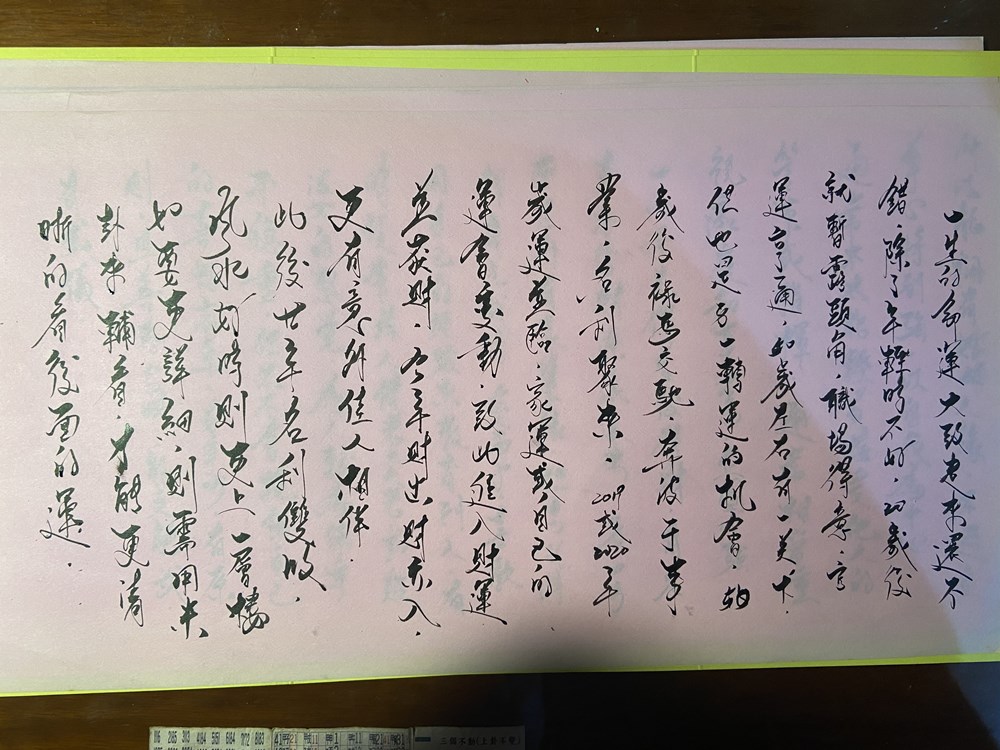 一生的命運大致看来還不
錯.除了年輕時不好.20歲後
就暫露頭角.職場得意.官
運亨通.歲左右有一关卡.
但也是另一轉運的机會.
歲後祿馬交馳.奔波于事
業.名利聚来.2019或2020年
歲運並臨.家運或自己的
運會变動.致此進入財運
並获財.今年財出財亦入.
更有意外佳人相伴.
此後廿年名利雙收.
風水好時則更上一層樓
如要更詳細.則需用米
卦来輔看.才能更清
晰的看後面的運.